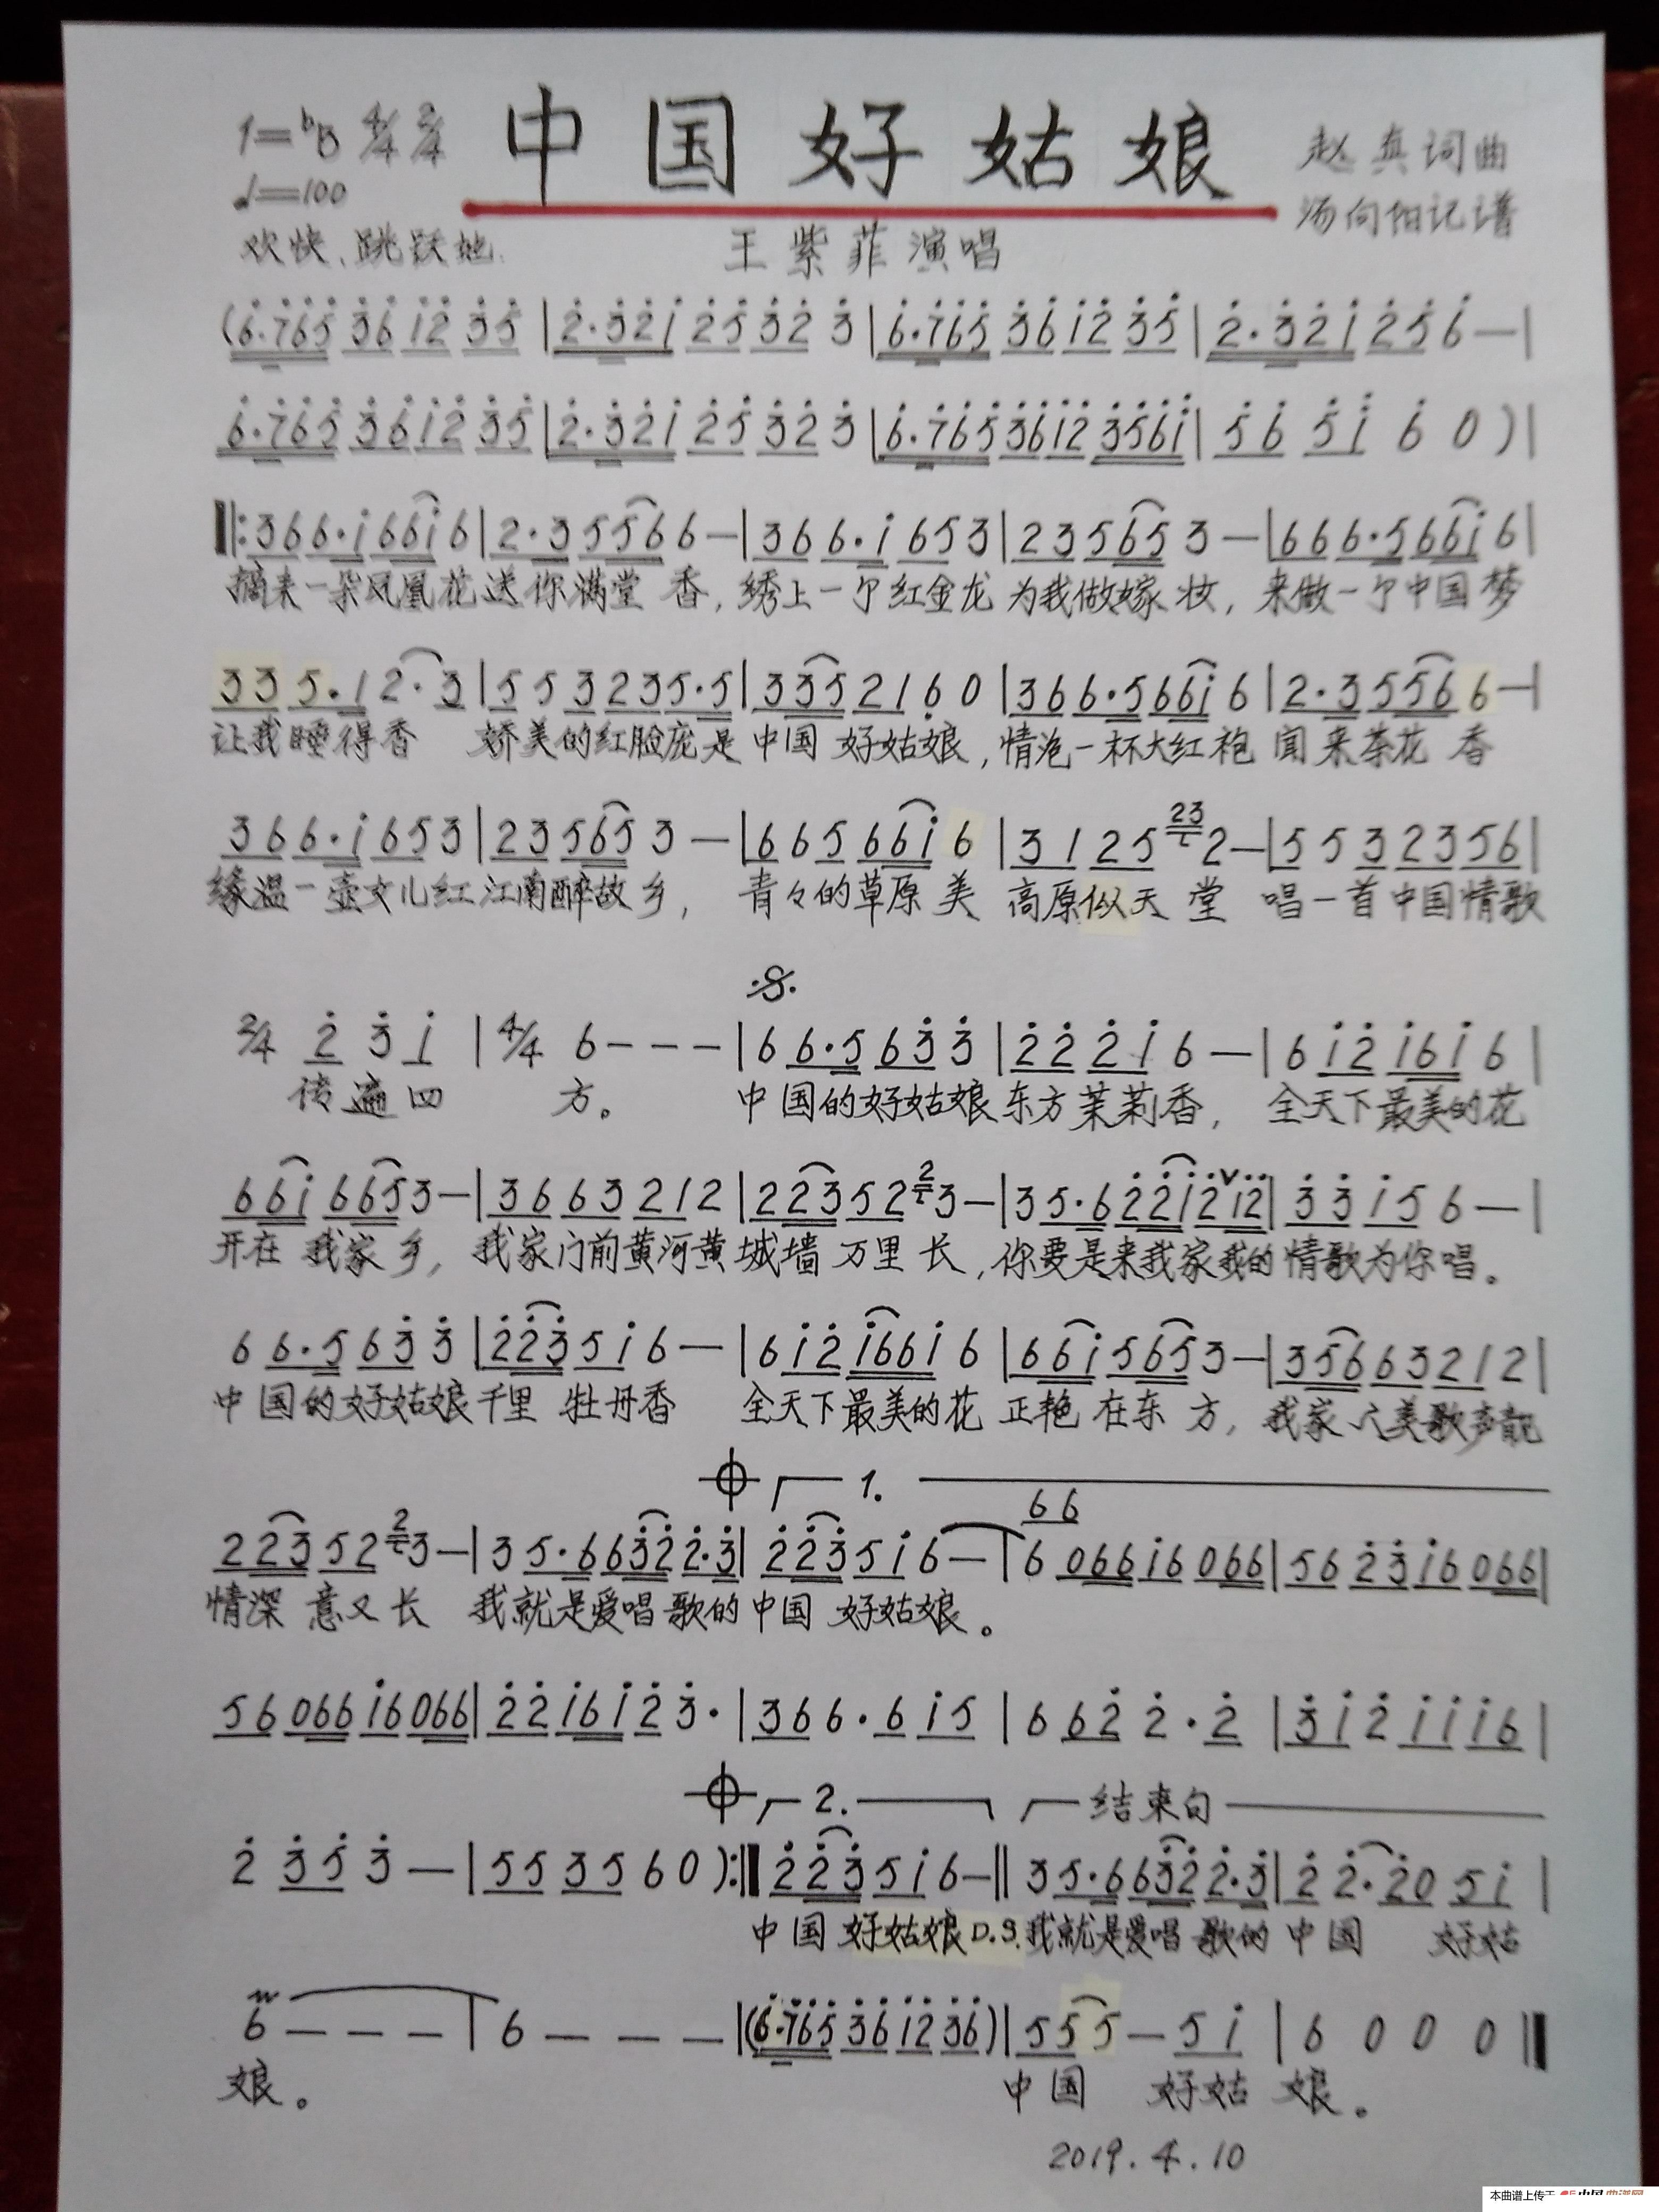 1=♭B 4/4 2/4
中国好姑娘
赵真词曲
♩=100
汤向阳记谱
欢快、跳跃地
王紫菲演唱
(6·765 36 12 35 | 2·321 25 32 3 | 6·765 36 12 35 | 2·321 25 6 — |
6·765 36 12 35 | 2·321 25 32 3 | 6·765 3612 3561 | 56 51 6 0 ) |
‖: 36 6·1 661 6 | 2·3 556 6 — | 36 6·1 65 3 | 23 565 3 — | 66 6·5 661 6 |
摘来一朵凤凰花送你满堂香，绣上一个红金龙为我做嫁妆，来做一个中国梦
33 5·1 2·3 | 5 5 3 23 5·5 | 335 21 6 0 | 36 6·5 661 6 | 2·3 556 6 — |
让我睡得香 娇美的红脸庞是中国好姑娘，情沧一杯大红袍闻来茶花香
36 6·1 65 3 | 23 565 3 — | 6 6 5 661 6 | 31 25 23 2 — | 5 5 3 23 56 |
缘温一壶女儿红江南醉故乡，青々的草原美高原似天堂唱一首中国情歌
2/4 2 3 1 | 4/4 6 — — — | 6 6·5 63 3 | 22 21 6 — | 6 12 161 6 |
传遍四方。中国的好姑娘东方茉莉香，全天下最美的花
661 665 3 — | 36 63 21 2 | 223 52 2 3 — | 3 5·6 221 2 ∨ 12 | 33 15 6 — |
开在我家乡，我家门前黄河黄城墙万里长，你要是来我家我的情歌为你唱。
6 6·5 63 3 | 223 51 6 — | 6 12 1661 6 | 661 565 3 — | 356 63 21 2 |
中国的好姑娘千里牡丹香 全天下最美的花正艳在东方，我家人美歌声靓
1.
66
223 52 2 3 — | 3 5·6 632 2·3 | 223 51 6 — | 6 066 16 066 | 56 23 16 066 |
情深意又长 我就是爱唱歌的中国好姑娘。
56 066 16 066 | 22 161 2 3· | 36 6·6 15 | 6 62 2·2 | 31 2 11 16 |
2. 结束句
2 35 3 — | 55 35 6 0 ) :‖ 223 51 6 — ‖ 3 5·6 632 2·3 | 2 2·20 51 |
中国好姑娘D.S.我就是爱唱歌的中国 好姑
6 — — — | 6 — — — | (6·765 36 12 36 ) | 55 5 — 51 | 6 0 0 0 ‖
娘。 中国 好姑娘。
2019.4.10
本曲谱上传于